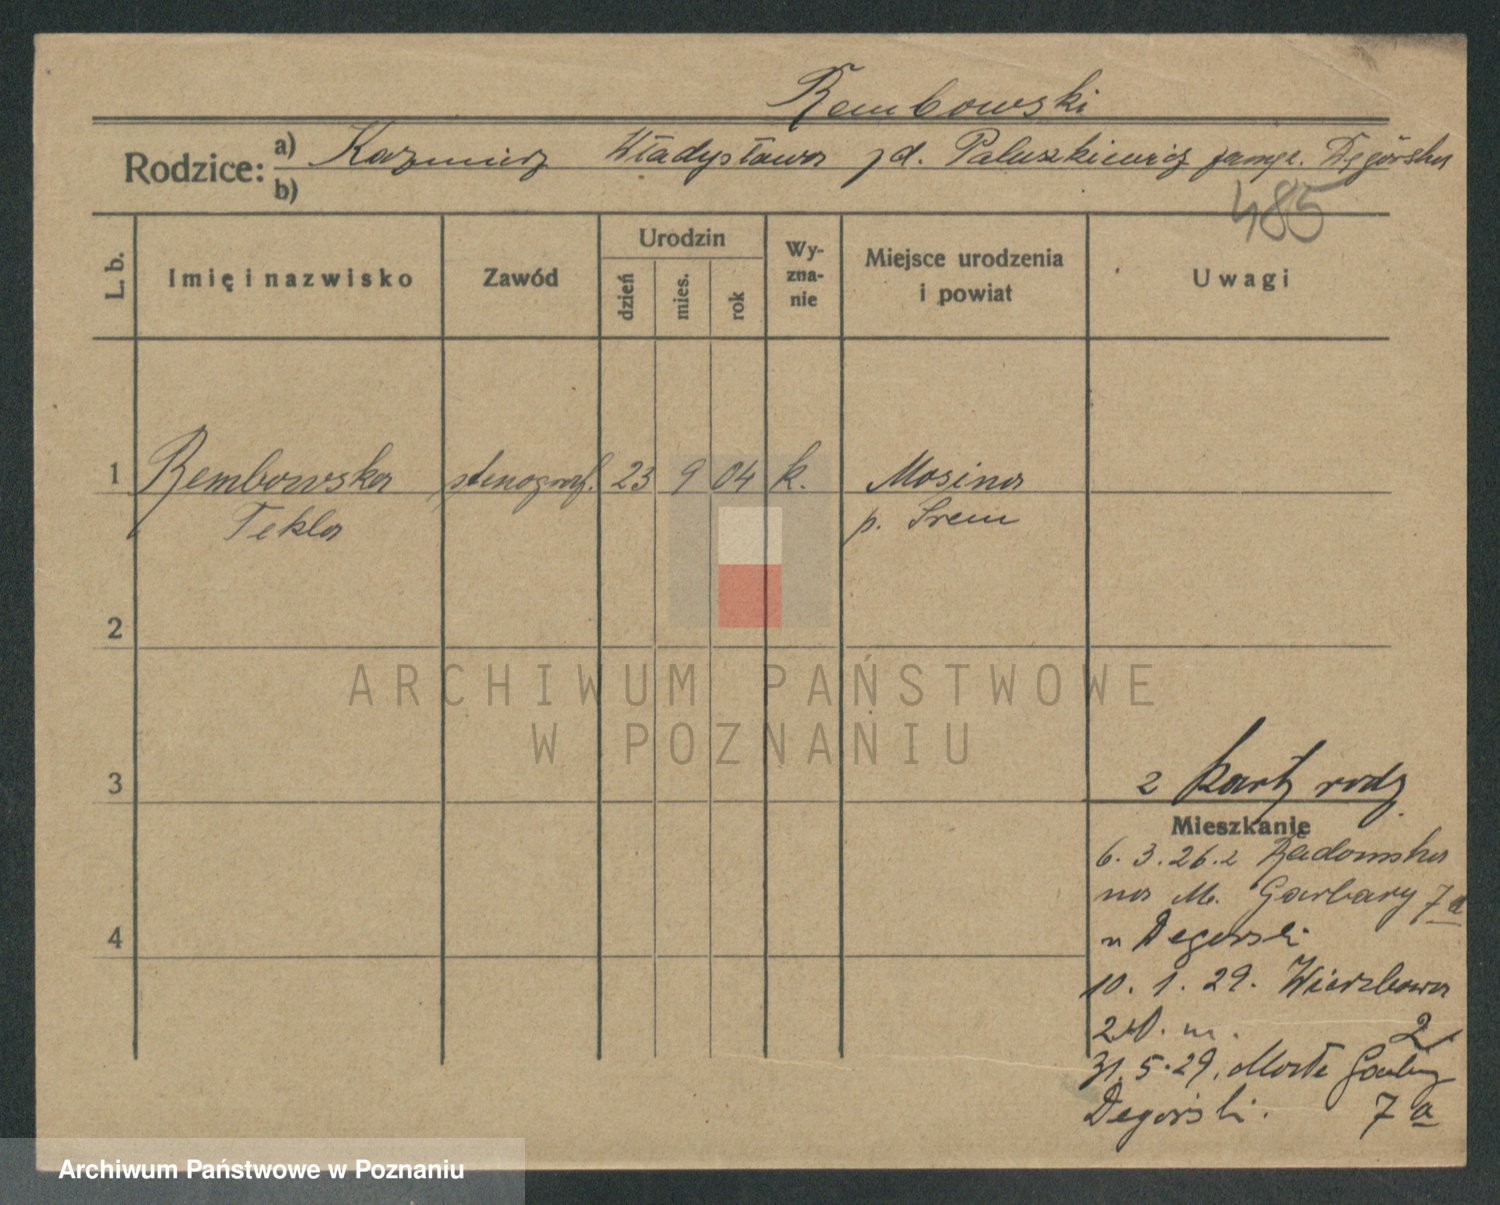 Rembowski
Rodzice: a) Kazimierz Władysława zd. Paluszkiewicz zamęż. Dęgórska
b)
485
L. b. Imię i nazwisko Zawód Urodzin dzień mies. rok Wy-zna-nie Miejsce urodzenia i powiat Uwagi
1 Rembowska stenograf. 23 9 04 k. Mosina
Tekla p. Śrem
2
ARCHIWUM PAŃSTWOWE
W POZNANIU
2 karty rodz.
3
Mieszkanie
6. 3. 26. z Radomska
na M. Garbary 7a
4
u Degórski
10. 1. 29. Wierzbowa
2
31. 5. 29. Małe Garbary
Degórski. 7a
Archiwum Państwowe w Poznaniu